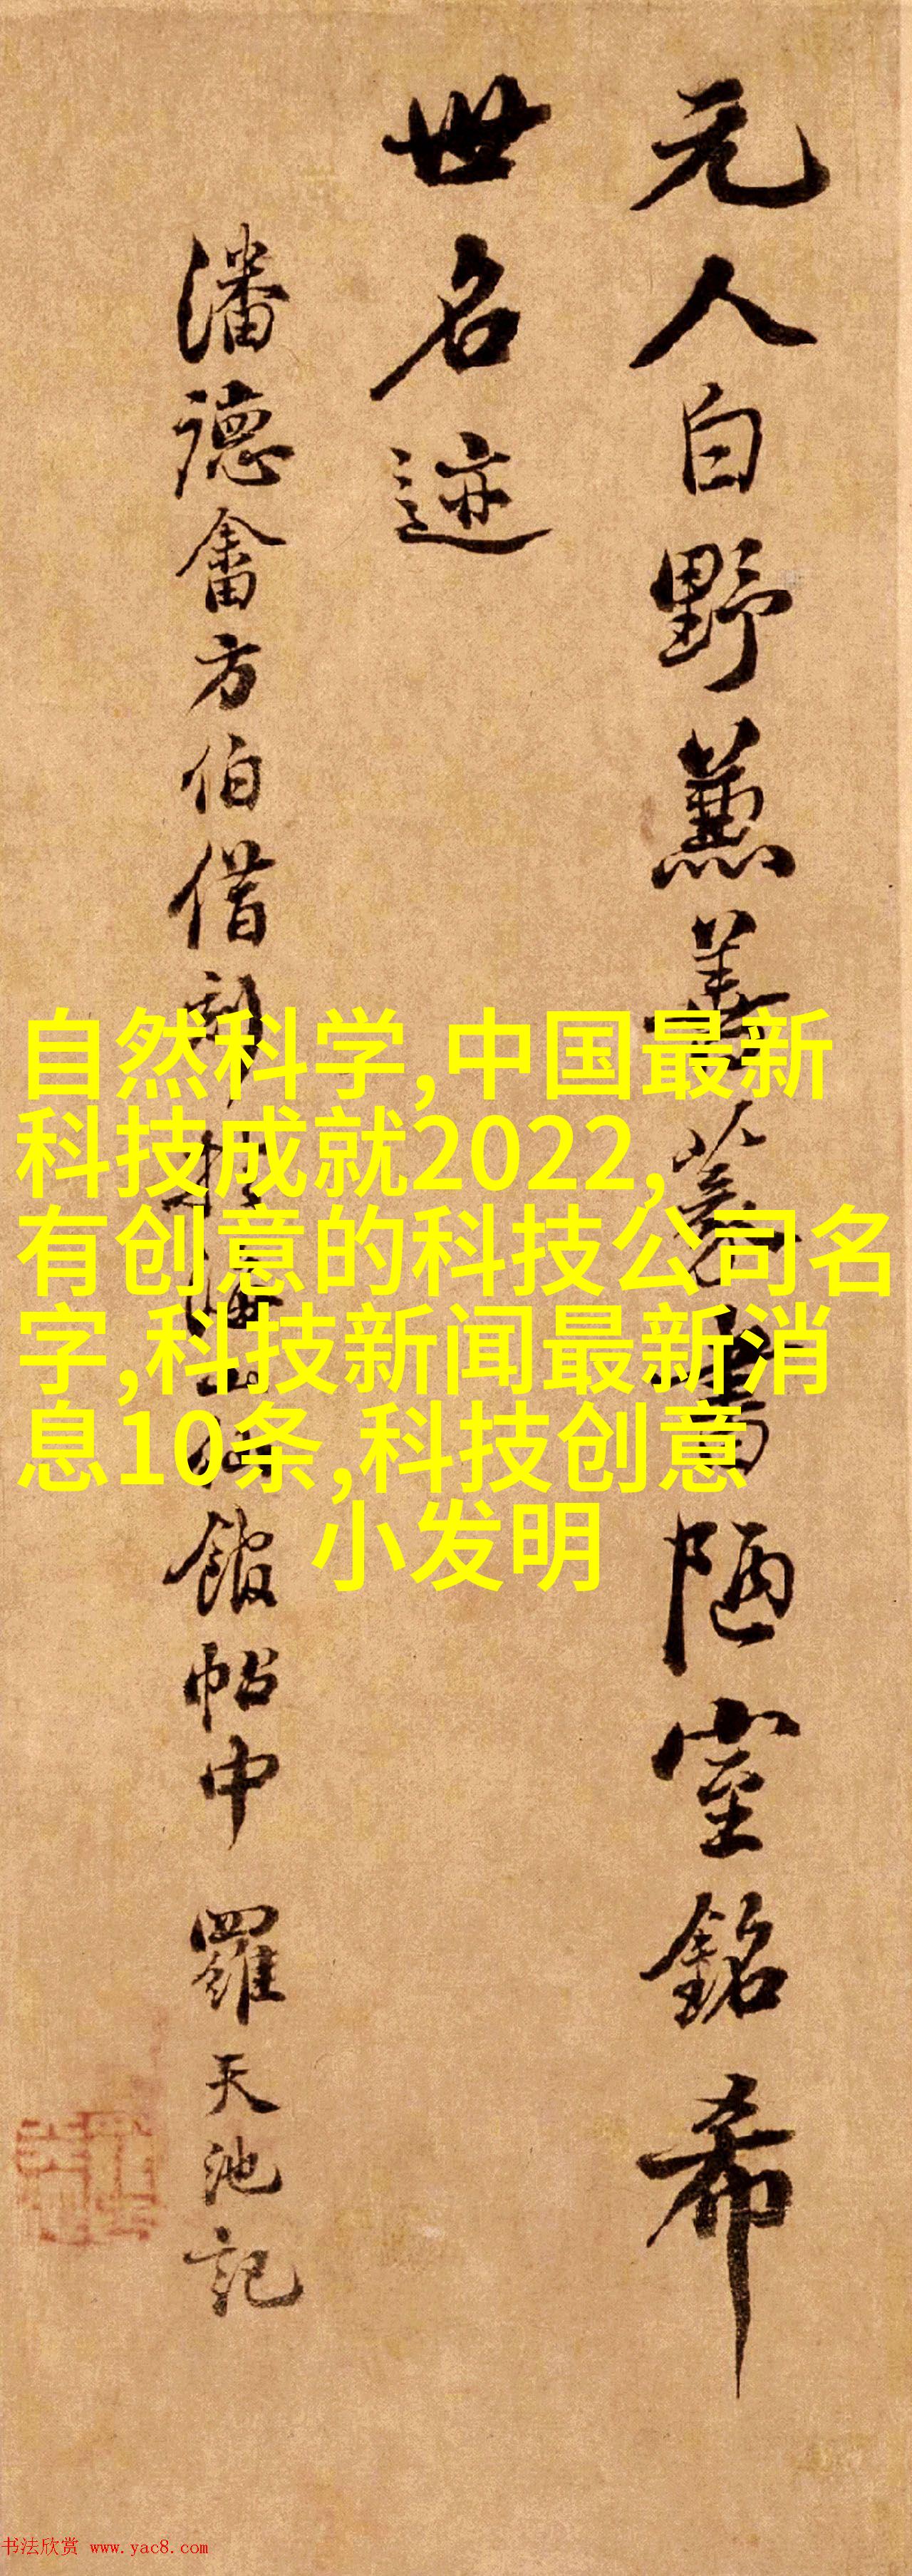 元人白野蕙善慕書陋室銘希
世名迹
潘德畬方伯借刻於海山仙館帖中 羅天池記
自然科学,中国最新
科技成就2022,
有创意的科技公司名
字,科技新闻最新消
息10条,科技创意
小发明
书法欣赏 www.yac8.com